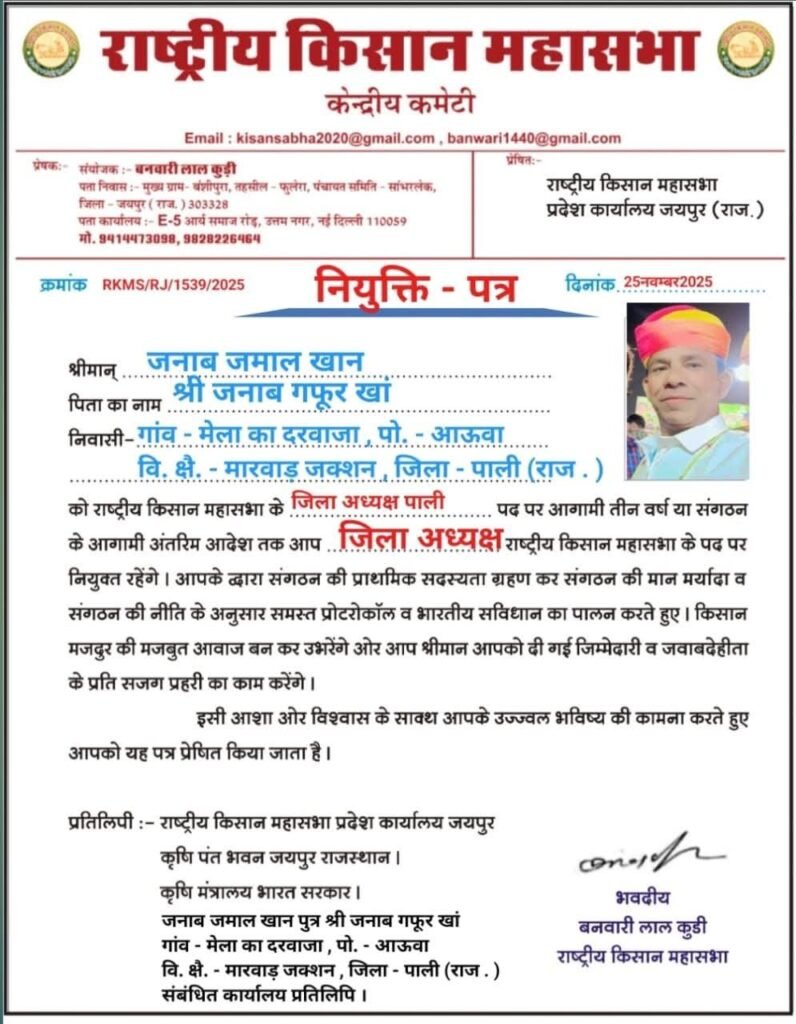 राष्ट्रीय किसान महासभा
केन्द्रीय कमेटी
Email : kisansabha2020@gmail.com , banwari1440@gmail.com
प्रेषक:- संयोजक :- बनवारी लाल कुड़ी
पता निवास :- मुख्य ग्राम- बंशीपुरा, तहसील - फुलेरा, पंचायत समिति - सांभरलेक,
जिला - जयपुर ( राज. ) 303328
पता कार्यालय :- E-5 आर्य समाज रोड़, उत्तम नगर, नई दिल्ली 110059
मो. 9414473098, 9828226464
प्रेषित:-
राष्ट्रीय किसान महासभा
प्रदेश कार्यालय जयपुर (राज.)
क्रमांक RKMS/RJ/1539/2025
नियुक्ति - पत्र
दिनांक 25नवम्बर2025
श्रीमान् जनाब जमाल खान
पिता का नाम श्री जनाब गफूर खां
निवासी- गांव - मेला का दरवाजा , पो. - आऊवा
वि. क्षै. - मारवाड़ जक्शन , जिला - पाली (राज . )
को राष्ट्रीय किसान महासभा के जिला अध्यक्ष पाली पद पर आगामी तीन वर्ष या संगठन
के आगामी अंतरिम आदेश तक आप जिला अध्यक्ष राष्ट्रीय किसान महासभा के पद पर
नियुक्त रहेंगे । आपके द्वारा संगठन की प्राथमिक सदस्यता ग्रहण कर संगठन की मान मर्यादा व
संगठन की नीति के अनुसार समस्त प्रोटरोकॉल व भारतीय सविधान का पालन करते हुए । किसान
मजदुर की मजबुत आवाज बन कर उभरेंगे ओर आप श्रीमान आपको दी गई जिम्मेदारी व जवाबदेहीता
के प्रति सजग प्रहरी का काम करेंगे ।
इसी आशा ओर विश्वास के साक्थ आपके उज्ज्वल भविष्य की कामना करते हुए
आपको यह पत्र प्रेषित किया जाता है ।
प्रतिलिपी :- राष्ट्रीय किसान महासभा प्रदेश कार्यालय जयपुर
कृषि पंत भवन जयपुर राजस्थान ।
कृषि मंत्रालय भारत सरकार ।
जनाब जमाल खान पुत्र श्री जनाब गफूर खां
गांव - मेला का दरवाजा , पो. - आऊवा
वि. क्षै. - मारवाड़ जक्शन , जिला - पाली (राज . )
संबंधित कार्यालय प्रतिलिपि ।
भवदीय
बनवारी लाल कुडी
राष्ट्रीय किसान महासभा